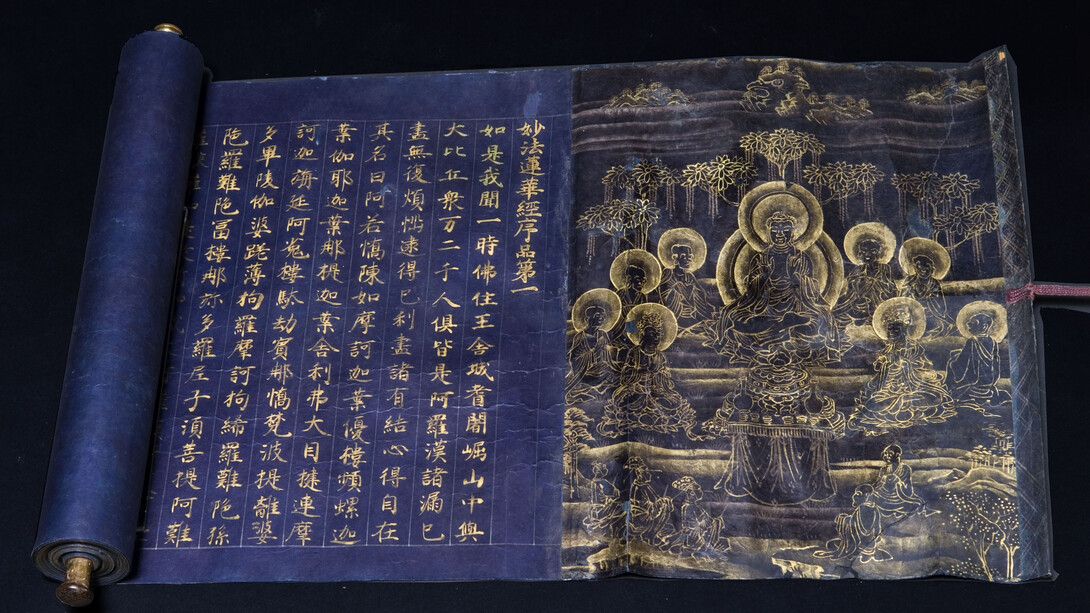 妙法蓮華經序品第一
如是我聞一時佛住王舍城耆闍崛山中與
大比丘衆万二千人俱皆是阿羅漢諸漏已
盡無復煩惱逮得己利盡諸有結心得自在
其名曰阿若憍陳如摩訶迦葉優樓頻螺迦
葉伽耶迦葉那提迦葉舍利弗大目揵連摩
訶迦旃延阿㝹樓馱劫賓那憍梵波提離婆
多畢陵伽婆蹉薄拘羅摩訶拘絺羅難陁孫
陁羅難陁富樓那弥多羅尼子須菩提阿難